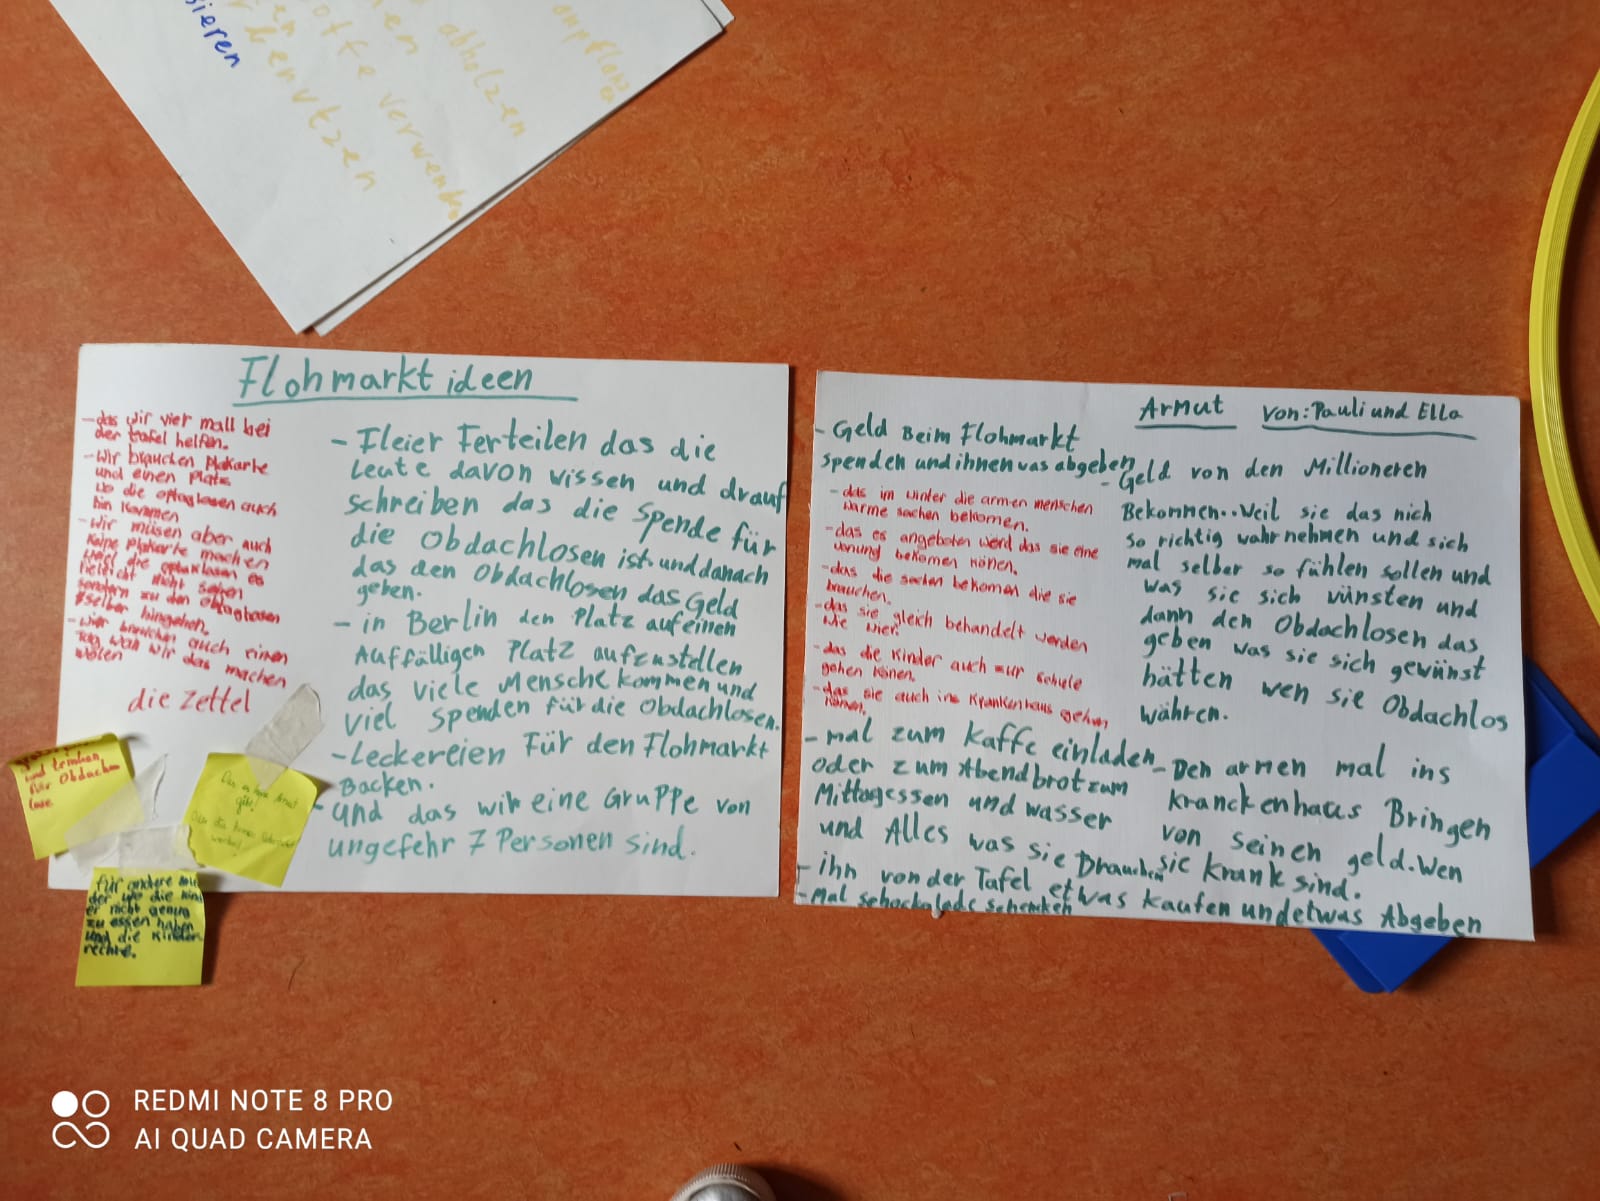 sieren
abholzen
verwenden
benutzen
Flohmarkt ideen
-das wir vier mall bei
der tafel helfen.
-Wir brauchen Plakarte
und einen Platz
wo die optaglosen auch
hin kommen
-Wir müsen aber auch
Plakarte machen
weil die es
nicht
sondern zu den
selber hingehen.
-wir brauchen auch einen
Tag wan wir das machen
wolen
die Zettel
- Fleier Ferteilen das die
Leute davon wissen und drauf
schreiben das die Spende für
die Obdachlosen ist. und danach
das den Obdachlosen das Geld
geben.
- in Berlin den Platz auf einen
Auffälligen Platz aufzustellen
das viele Mensche kommen und
viel spenden für die Obdachlosen.
-Leckereien Für den Flohmarkt
Backen.
- Und das wir eine Gruppe von
ungefehr 7 Personen sind.
und trinken
für Obdach
lose
Das es keine Armut
gibt!
für andere
der wo die kind
er nicht genug
zu essen haben
und die Kinder
rechte.
Armut von: Pauli und Ella
- Geld Beim Flohmarkt
spenden und ihnen was abgeben
-das im winter die armen menschen
warme sachen bekomen.
-das es angeboten werd das sie eine
wonung bekomen könen.
-das die sachen bekomen die sie
brauchen.
-das sie gleich behandelt werden
wie wier.
-das die Kinder auch zur schule
gehen könen.
-das sie auch ins Krankenhaus gehen
könen.
- mal zum Kaffe einladen
oder zum Abendbrot zum
Mittagessen und wasser
und Alles was sie Brauchen
- ihn von der Tafel etwas kaufen und etwas Abgeben
- Mal schockolade schenken
- Geld von den Millioneren
Bekommen..Weil sie das nich
so richtig wahrnehmen und sich
mal selber so fühlen sollen und
was sie sich vünsten und
dann den Obdachlosen das
geben was sie sich gewünst
hätten wen sie Obdachlos
währen.
- Den armen mal ins
kranckenhaus Bringen
von seinen geld. Wen
sie Krank sind.
REDMI NOTE 8 PRO
AI QUAD CAMERA